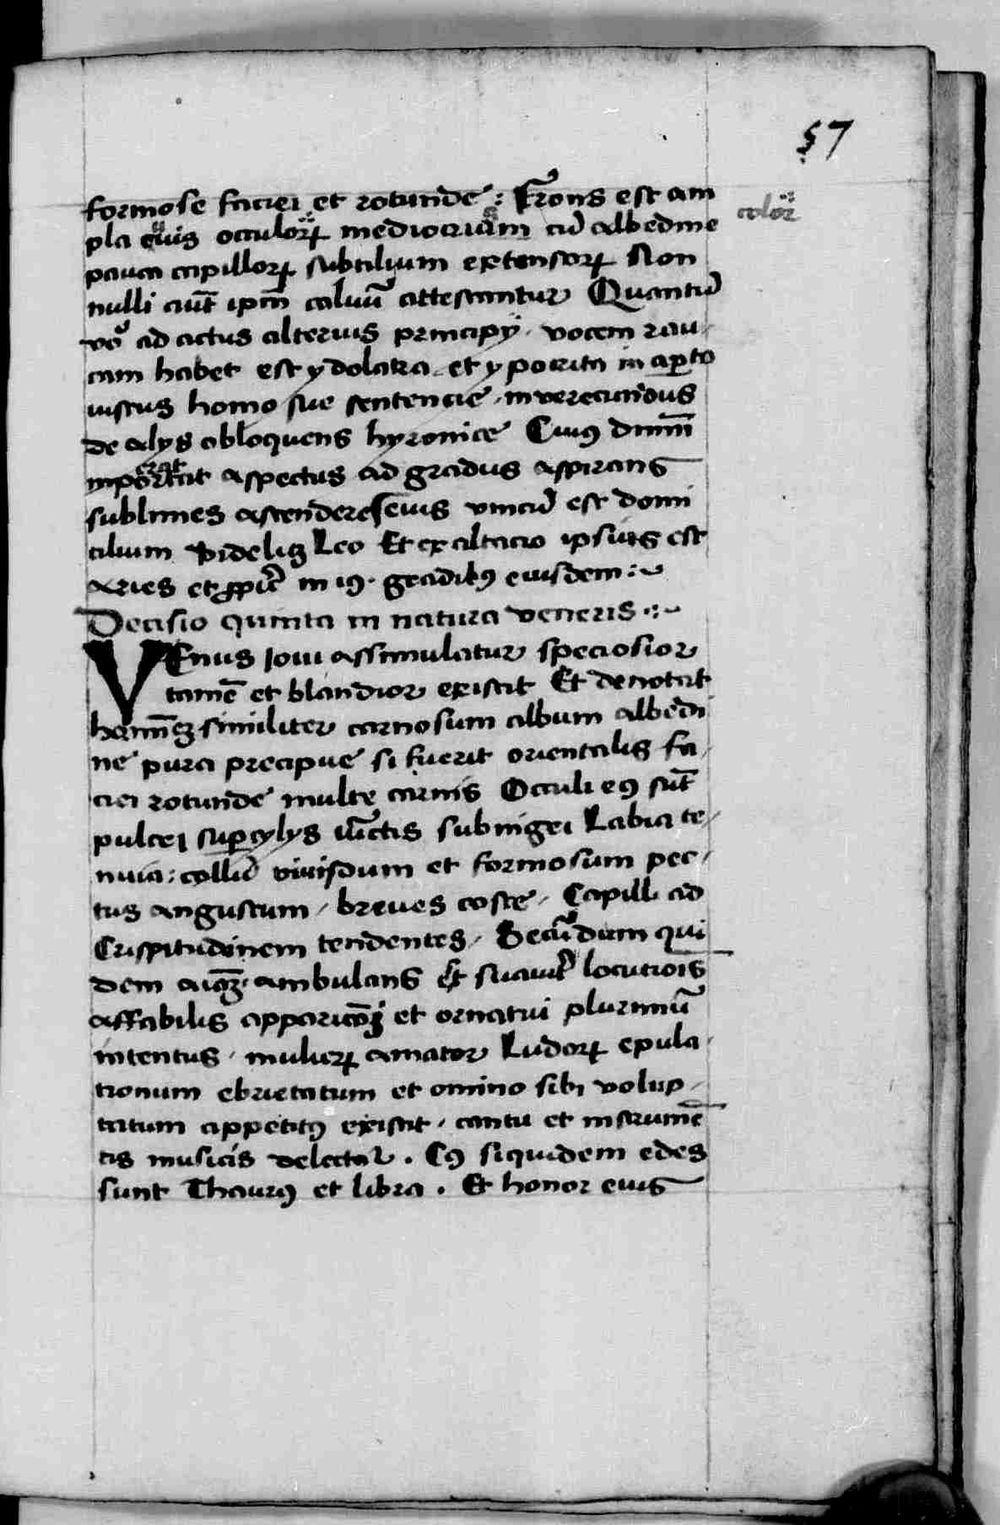 57
formose faciei et rotunde : Frons est am
color
pla eius occuloꝝ mediocrium cũ albedine
pauca capilloꝝ subtilium extensoꝝ Non
nulli aũt ipm̃ caluũ attestantur Quantũ
vẽo ad actus alterius principij . vocem rau
cam habet est ydolatra et ypocrita in aperto
iustus homo sue sentencie . inverecundus
de alijs obloquens hyronice Cuiꝯ
aspectus ad gradus aspirans
sublimes ascendere eius vnicũ est domi
cilium videlicꝫ Leo Et exaltacio ipsius est
aries et in 19 . gradibꝯ eiusdem :~
Decisio quinta in natura veneris :~
VEnus Ioui assimulatur speciosior
tamẽ et blandior existit Et denotat
similiter carnosum album albedi
ne pura precipue si fuerit orientalis fa
ciei rotunde multe carnis Occuli eiꝯ sũt
pulcri supercylijs iũctis subnigri Labia te
nuia : collũ et formosum pec
tus angustum / breues coste / Capilli ad
Crispitudinem tendentes / Secũdum qui
dem ambulans et locutiõis
affabilis et ornatui plurimũ
intentus . mulieꝝ amator Ludoꝝ epula
tionum ebrietatum et omino sibi volup
tatum appetitꝯ existit . cantu et instrumẽ
tis musicis delectat̃ . Cꝯ siquidem edes
sunt Thaurꝯ et libra . Et honor eius